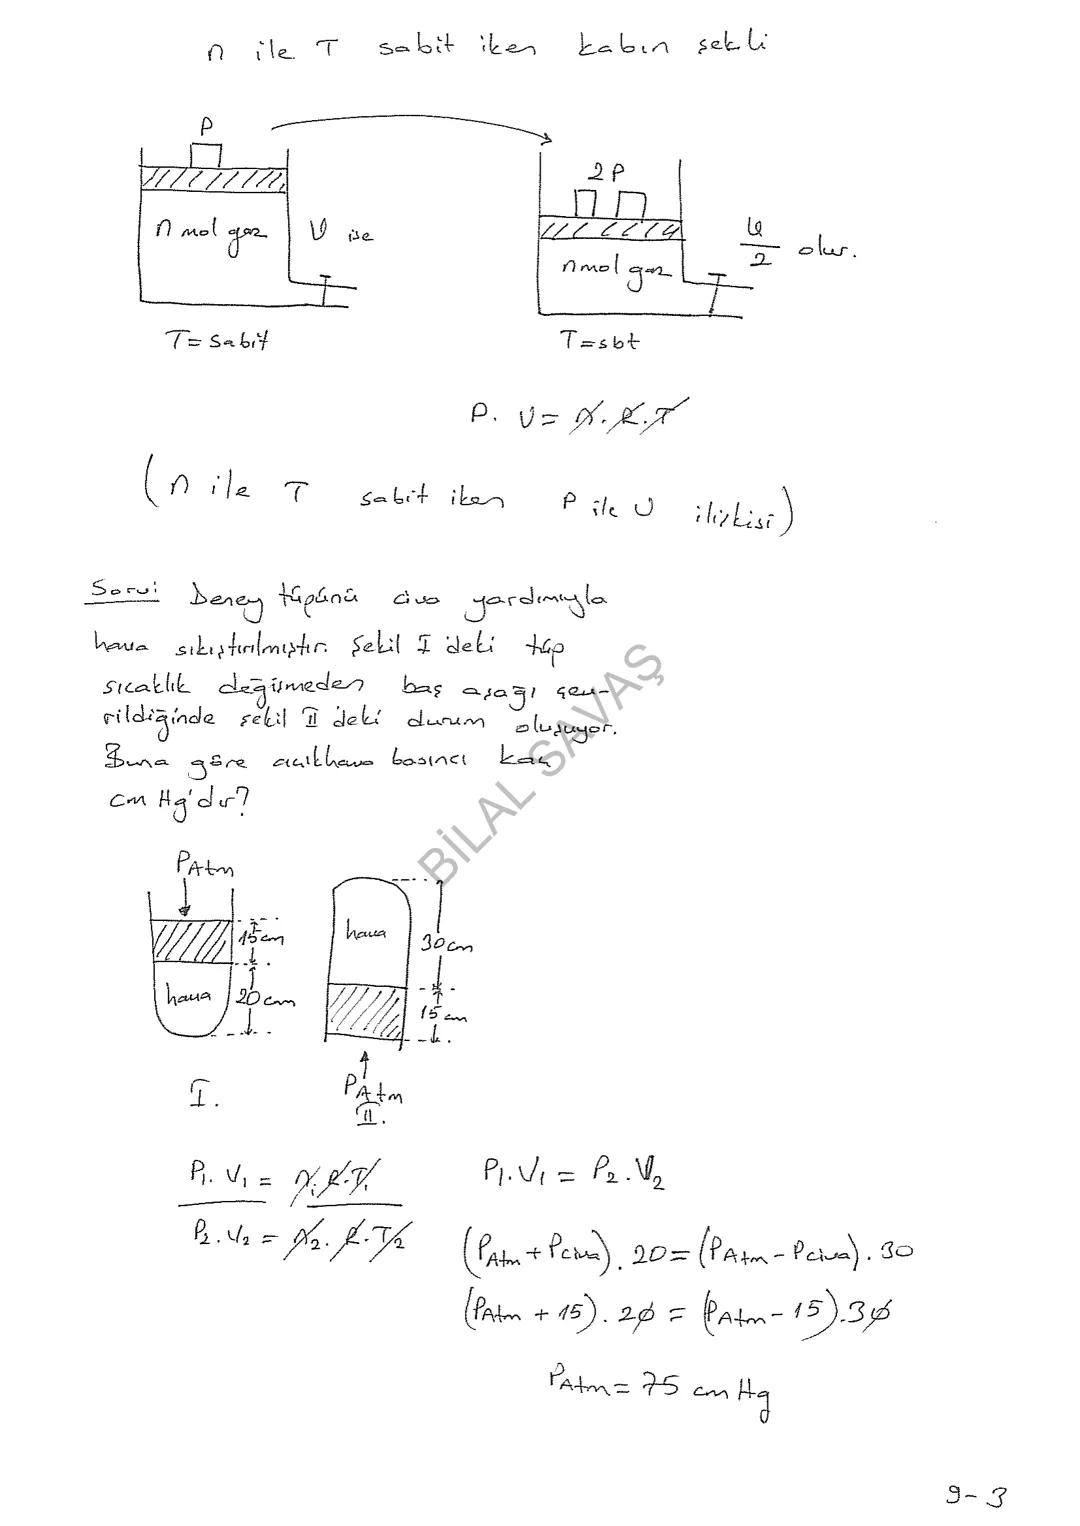 n ile T sabit iken kabın şekli
P
2P
n mol gaz
V ise
n mol gaz
V/2 olur.
T = sabit
T = sbt
P. V = n.R.T
(n ile T sabit iken P ile V ilişkisi)
Soru: Deney tüpünü civa yardımıyla
hava sıkıştırılmıştır. Şekil I'deki tüp
sıcaklık değişmeden baş aşağı çev-
rildiğinde şekil II'deki durum oluşuyor.
Buna göre açıkhava basıncı kaç
cm Hg'dır?
BİLAL SAVAŞ
PAtm
15 cm
hava
20 cm
I.
hava
30 cm
15 cm
PAtm
II.
P1. V1 = n1.R.T1
P2. V2 = n2.R.T2
P1.V1 = P2.V2
(PAtm + Pciva). 20 = (PAtm - Pciva). 30
(PAtm + 15). 20 = (PAtm - 15).30
PAtm = 75 cm Hg
9-3